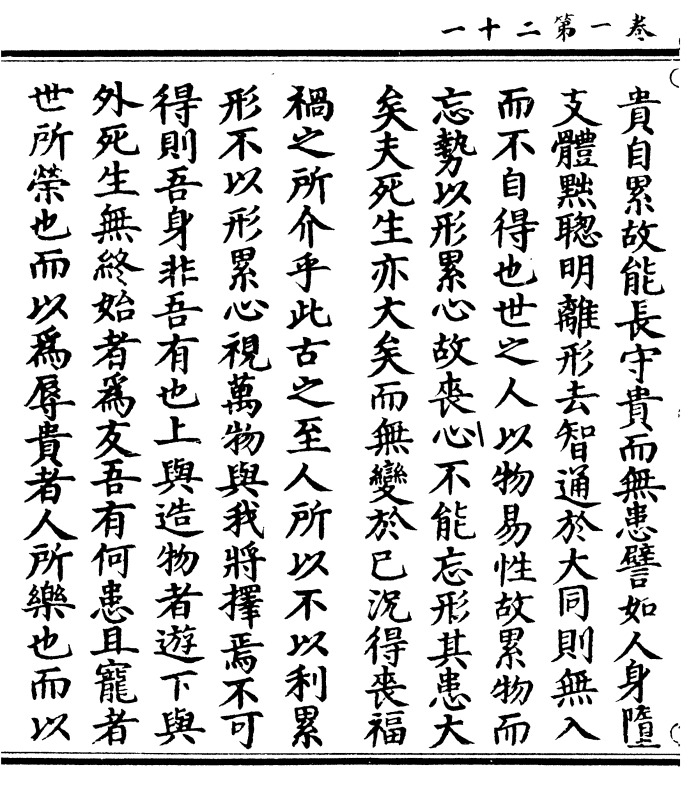 卷一第二十一
貴自累故能長守貴而無患譬如人身墮
支體黜聰明離形去智通於大同則無入
而不自得也世之人以物易性故累物而
忘勢以形累心故喪心不能忘形其患大
矣夫死生亦大矣而無變於已況得喪福
禍之所介乎此古之至人所以不以利累
形不以形累心視萬物與我將擇焉不可
得則吾身非吾有也上與造物者遊下與
外死生無終始者為友吾有何患且寵者
世所榮也而以為辱貴者人所樂也而以